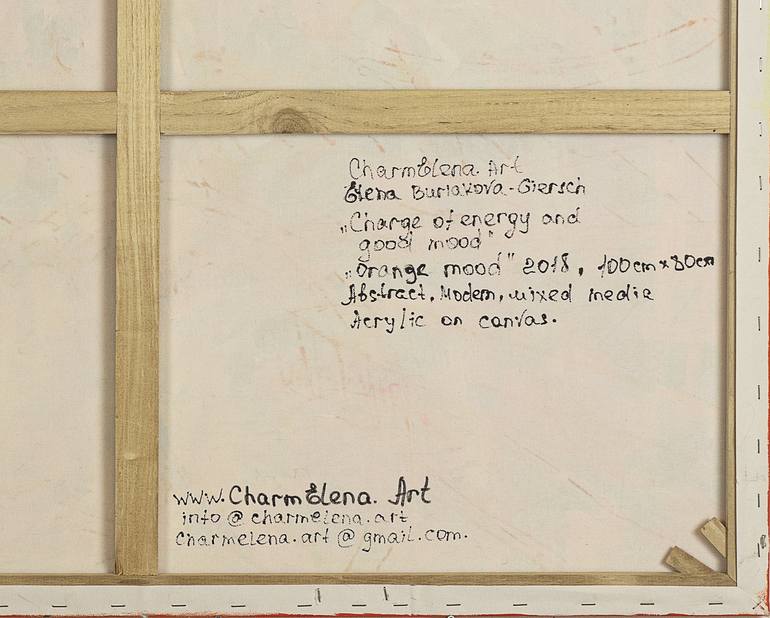 CharmElena. Art
Elena Burlakova-Giersch
„Charge of energy and
good mood"
„Orange mood" 2018, 100cm x 80cm
Abstract, Modern, mixed media
Acrylic on canvas.
www.CharmElena. Art
info @ charmelena.art
Charmelena.art @ gmail.com.